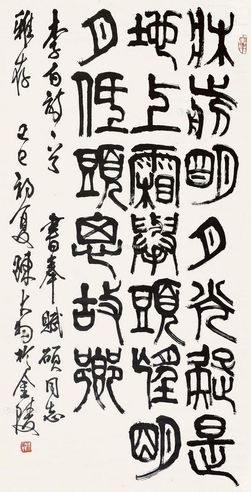 牀前明月光疑是
地上霜舉頭望明
月低頭思故鄉
李白詩一首 書奉賦碩同志
雅存 巳初夏陳大羽於金陵